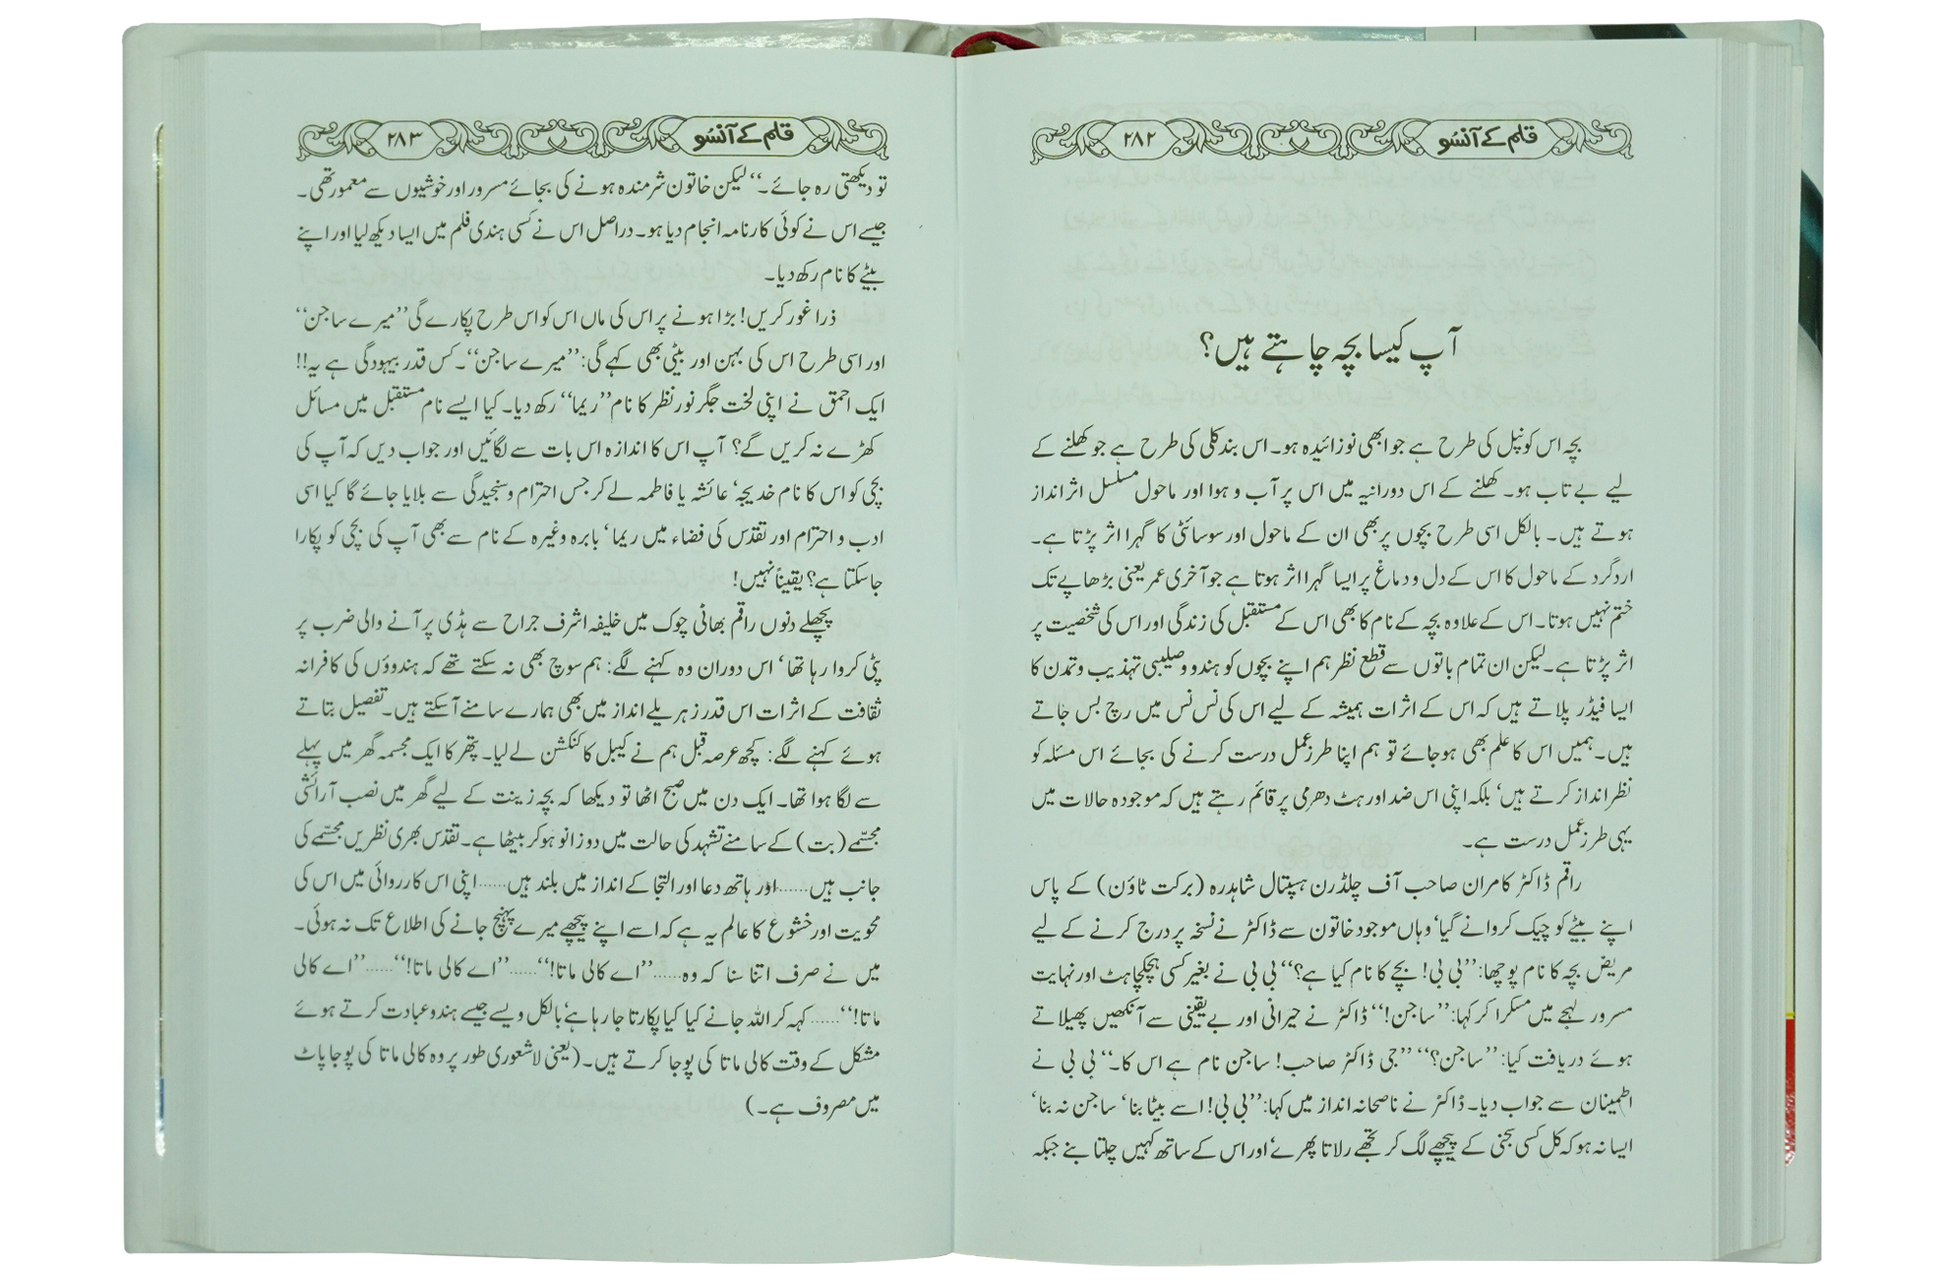 قلم کے آنسو ۲۸۲
آپ کیسا بچہ چاہتے ہیں؟
بچہ اس کونپل کی طرح ہے جو ابھی نوزائیدہ ہو۔ اس بند کلی کی طرح ہے جو کھلنے کے
لیے بے تاب ہو۔ کھلنے کے اس دورانیہ میں اس پر آب و ہوا اور ماحول مسلسل اثر انداز
ہوتے ہیں۔ بالکل اسی طرح بچوں پر بھی ان کے ماحول اور سوسائٹی کا گہرا اثر پڑتا ہے۔
اردگرد کے ماحول کا اس کے دل و دماغ پر ایسا گہرا اثر ہوتا ہے جو آخری عمر یعنی بڑھاپے تک
ختم نہیں ہوتا۔ اس کے علاوہ بچہ کے نام کا بھی اس کے مستقبل کی زندگی اور اس کی شخصیت پر
اثر پڑتا ہے۔ لیکن ان تمام باتوں سے قطع نظر ہم اپنے بچوں کو ہندو و صلیبی تہذیب و تمدن کا
ایسا فیڈر پلاتے ہیں کہ اس کے اثرات ہمیشہ کے لیے اس کی نس نس میں رچ بس جاتے
ہیں۔ ہمیں اس کا علم بھی ہو جائے تو ہم اپنا طرز عمل درست کرنے کی بجائے اس مسئلہ کو
نظر انداز کرتے ہیں‘ بلکہ اپنی اس ضد اور ہٹ دھرمی پر قائم رہتے ہیں کہ موجودہ حالات میں
یہی طرز عمل درست ہے۔
راقم ڈاکٹر کامران صاحب آف چلڈرن ہسپتال شاہدرہ (برکت ٹاؤن) کے پاس
اپنے بیٹے کو چیک کروانے گیا‘ وہاں موجود خاتون سے ڈاکٹر نے نسخہ پر درج کرنے کے لیے
مریض بچہ کا نام پوچھا: ’’بی بی! بچے کا نام کیا ہے؟‘‘ بی بی نے بغیر کسی ہچکچاہٹ اور نہایت
مسرور لہجے میں مسکرا کر کہا: ’’ساجن!‘‘ ڈاکٹر نے حیرانی اور بے یقینی سے آنکھیں پھیلاتے
ہوئے دریافت کیا: ’’ساجن؟‘‘ ’’جی ڈاکٹر صاحب! ساجن نام ہے اس کا۔‘‘ بی بی نے
اطمینان سے جواب دیا۔ ڈاکٹر نے ناصحانہ انداز میں کہا: ’’بی بی! اسے بیٹا بنا‘ ساجن نہ بنا‘
ایسا نہ ہو کہ کل کسی سجنی کے پیچھے لگ کر تجھے رلاتا پھرے‘ اور اس کے ساتھ کہیں چلتا بنے جبکہ
قلم کے آنسو ۲۸۳
تو دیکھتی رہ جائے۔‘‘ لیکن خاتون شرمندہ ہونے کی بجائے مسرور اور خوشیوں سے معمور تھی۔
جیسے اس نے کوئی کارنامہ انجام دیا ہو۔ دراصل اس نے کسی ہندی فلم میں ایسا دیکھ لیا اور اپنے
بیٹے کا نام رکھ دیا۔
ذرا غور کریں! بڑا ہونے پر اس کی ماں اس کو اس طرح پکارے گی ’’میرے ساجن‘‘
اور اسی طرح اس کی بہن اور بیٹی بھی کہے گی: ’’میرے ساجن‘‘۔ کس قدر بیہودگی ہے یہ!!
ایک احمق نے اپنی لخت جگر نور نظر کا نام ’’ریما‘‘ رکھ دیا۔ کیا ایسے نام مستقبل میں مسائل
کھڑے نہ کریں گے؟ آپ اس کا اندازہ اس بات سے لگائیں اور جواب دیں کہ آپ کی
بچی کو اس کا نام خدیجہ‘ عائشہ یا فاطمہ لے کر جس احترام و سنجیدگی سے بلایا جائے گا کیا اسی
ادب و احترام اور تقدس کی فضاء میں ریما‘ بابرہ وغیرہ کے نام سے بھی آپ کی بچی کو پکارا
جا سکتا ہے؟ یقیناً نہیں!
پچھلے دنوں راقم بھاٹی چوک میں خلیفہ اشرف جراح سے ہڈی پر آنے والی ضرب پر
پٹی کروا رہا تھا‘ اس دوران وہ کہنے لگے: ہم سوچ بھی نہ سکتے تھے کہ ہندوؤں کی کافرانہ
ثقافت کے اثرات اس قدر زہریلے انداز میں بھی ہمارے سامنے آ سکتے ہیں۔ تفصیل بتاتے
ہوئے کہنے لگے: کچھ عرصہ قبل ہم نے کیبل کا کنکشن لے لیا۔ پتھر کا ایک مجسمہ گھر میں پہلے
سے لگا ہوا تھا۔ ایک دن میں صبح اٹھا تو دیکھا کہ بچہ زینت کے لیے گھر میں نصب آرائشی
مجسّمے (بت) کے سامنے تشہد کی حالت میں دوزانو ہو کر بیٹھا ہے۔ تقدس بھری نظریں مجسّمے کی
جانب ہیں...... اور ہاتھ دعا اور التجا کے انداز میں بلند ہیں...... اپنی اس کارروائی میں اس کی
محویت اور خشوع کا عالم یہ ہے کہ اسے اپنے پیچھے میرے پہنچ جانے کی اطلاع تک نہ ہوئی۔
میں نے صرف اتنا سنا کہ وہ...... ’’اے کالی ماتا!‘‘...... ’’اے کالی ماتا!‘‘...... ’’اے کالی
ماتا!‘‘...... کہہ کر اللہ جانے کیا کیا پکارتا جا رہا ہے‘ بالکل ویسے جیسے ہندو عبادت کرتے ہوئے
مشکل کے وقت کالی ماتا کی پوجا کرتے ہیں۔ (یعنی لاشعوری طور پر وہ کالی ماتا کی پوجا پاٹ
میں مصروف ہے۔)